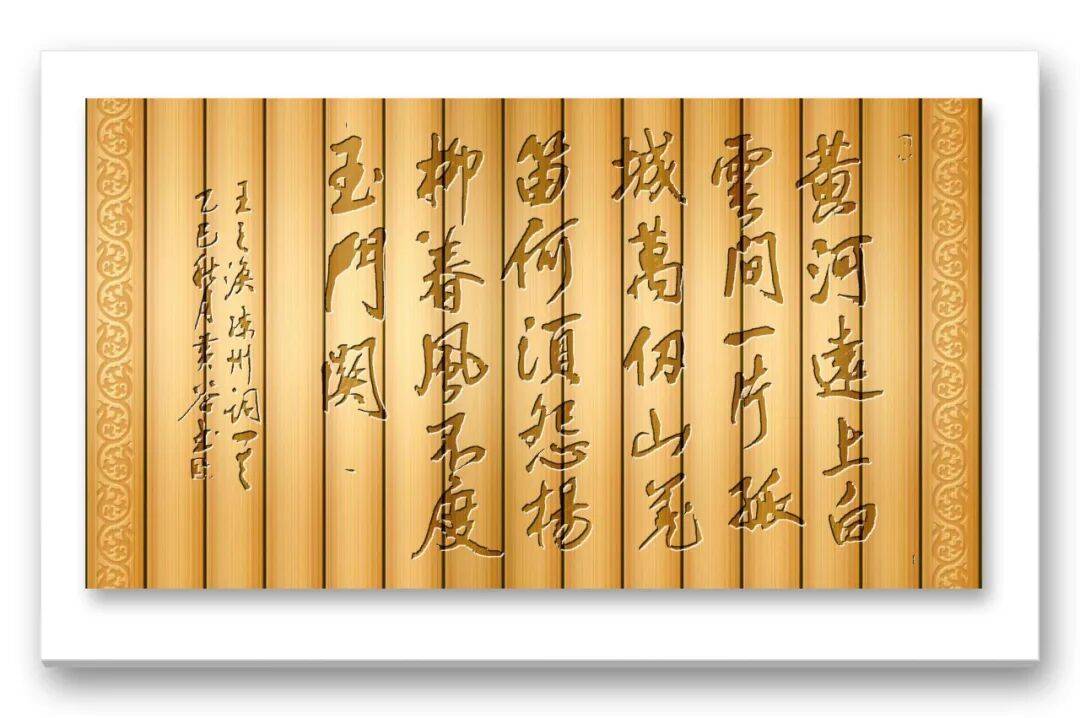 黄河遠上白
雲間一片孤
城萬仞山羌
笛何須怨楊
柳春風不度
玉門関
王之渙涼州詞
乙巳秋月書